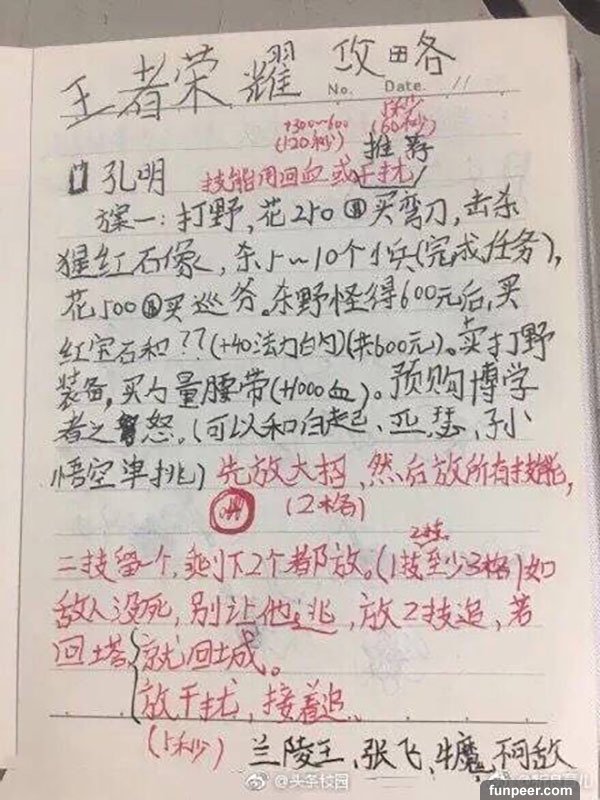 王者荣耀攻略
No. Date. //
+300~600 5秒
(120秒) (60秒)
推荐
孔明 技能用回血或干扰
方案一:打野,花250 买弯刀,击杀
猩红石像,杀5~10个小兵(完成任务),
花500 买巡爷。杀野怪得600元后,买
红宝石和??(+40法力白勺)(共600元)。卖打野
装备,买力量腰带(+1000血)。预购博学
者之怒。(可以和白起、亚瑟、孙
悟空单挑)先放大招,然后放所有技能,
(2格)
2技
二技留一个,剩下2个都放。(1技至少3格)如
敌人没死,别让他逃,放2技追,若
回塔,就回城。
放干扰,接着追。
(5秒) 兰陵王、张飞、牛魔、不可敌
@头条校园
funpeer.com